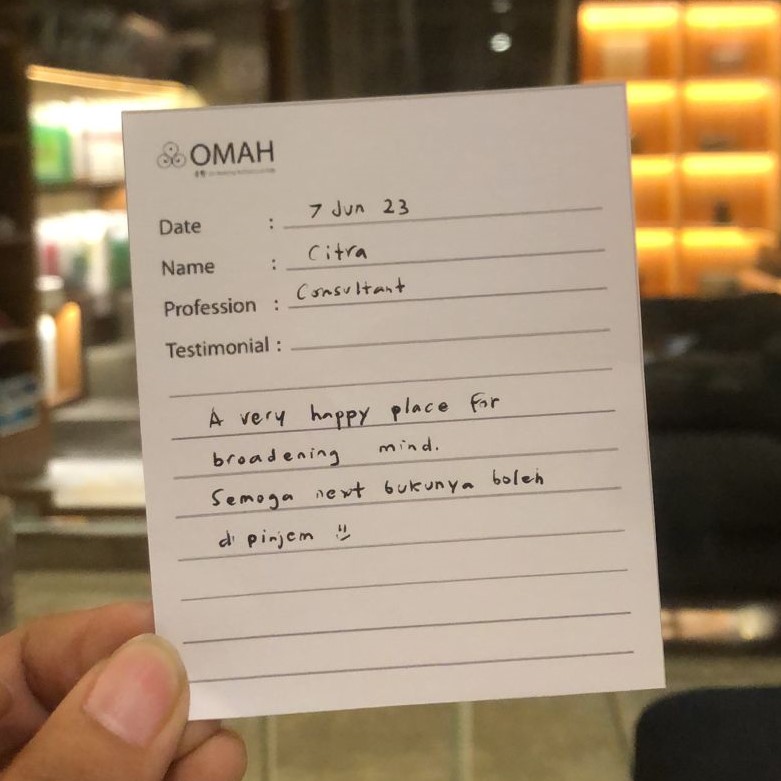 OMAH
Date : 7 Jun 23
Name : Citra
Profession : Consultant
Testimonial :
A very happy place for
broadening mind.
Semoga next bukunya boleh
di pinjem